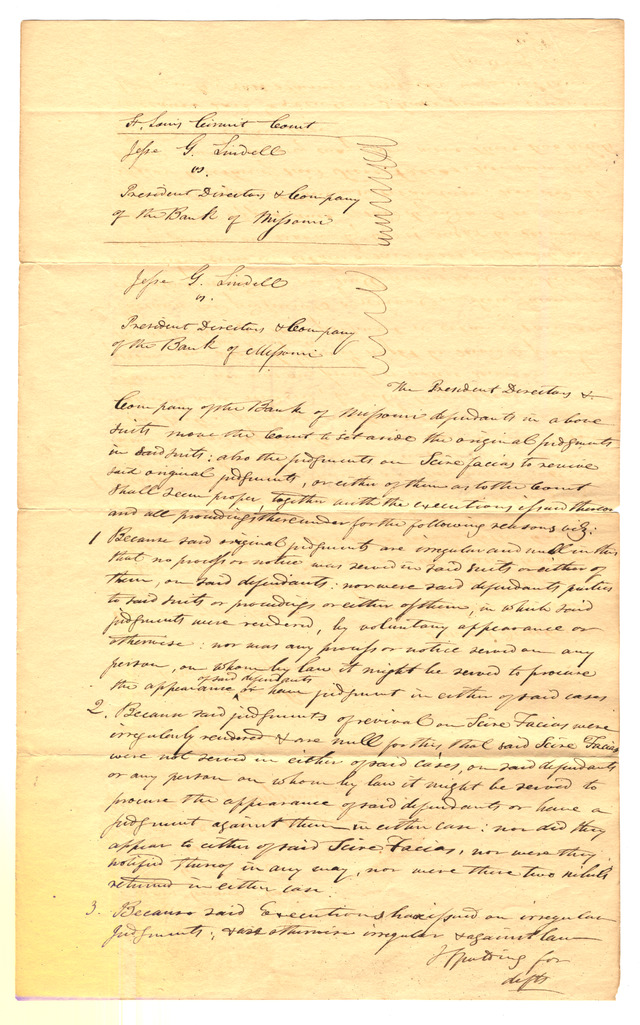 St. Louis Circuit Court
Jesse G. Lindell
vs.
President Directors & Company
of the Bank of Missouri
Jesse G. Lindell
vs.
President Directors & Company
of the Bank of Missouri
The President Directors &
Company of the Bank of Missouri defendants in above
suits move the Court to set aside the original judgments
in said suits; also the judgments on Scire facias to revive
said original judgments, or either of them as to the Court
shall seem proper together with the executions issued thereon
and all proceedings thereunder for the following reasons viz:
1 Because said original judgments are irregular and null in this
that no process or notice was served in said suits or either of
them, on said defendants: nor were said defendants parties
to said suits or proceedings or either of them, in which said
judgments were rendered, by voluntary appearance or
otherwise: nor was any process or notice served on any
person, on whom by law it might be served to procure
the appearance of said defendants or have judgment in either of said cases
2. Because said judgments of revival on Scire Facias were
irregularly rendered & are null for this that said Scire Facias
were not served in either of said cases, on said defendants
or any person on whom by law it might be served to
procure the appearance of said defendants or have a
judgment against them in either case: nor did they
appear to either of said Scire Facias, nor were they
notified thereof in any way, nor were there two nihils
returned in either case.
3. Because said Executions have issued on irregular
judgments; & are otherwise irregular & against law
Spalding for
defts